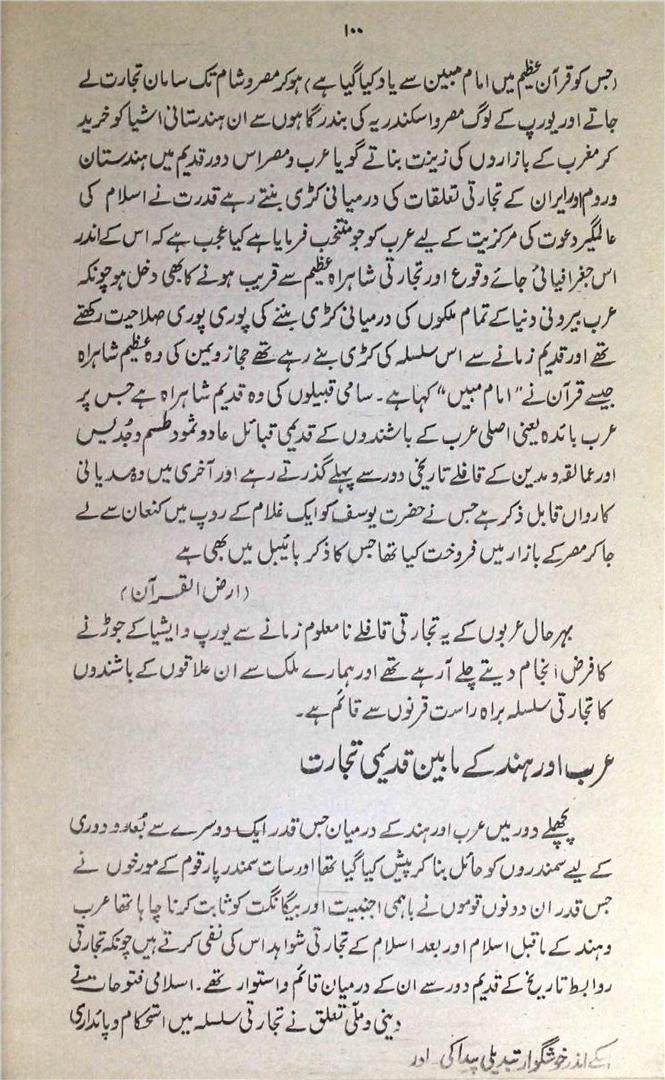 ۱۰۰
(جس کو قرآن عظیم میں امام مبین سے یاد کیا گیا ہے) ہو کر مصر و شام تک سامان تجارت لے
جاتے اور یورپ کے لوگ مصر و اسکندریہ کی بندرگاہوں سے ان ہندستانی اشیا کو خرید
کر مغرب کے بازاروں کی زینت بناتے گویا عرب و مصر اس دور قدیم میں ہندستان
و روم اور ایران کے تجارتی تعلقات کی درمیانی کڑی بنتے رہے قدرت نے اسلام کی
عالمگیر دعوت کی مرکزیت کے لیے عرب کو جو منتخب فرمایا ہے کیا عجب ہے کہ اس کے اندر
اس جغرافیائی جائے وقوع اور تجارتی شاہراہ عظیم سے قریب ہونے کا بھی دخل ہو چونکہ
عرب بیرونی دنیا کے تمام ملکوں کی درمیانی کڑی بننے کی پوری پوری صلاحیت رکھتے
تھے اور قدیم زمانے سے اس سلسلہ کی کڑی بنے رہے تھے حجاز و یمن کی وہ عظیم شاہراہ
جیسے قرآن نے "امام مبیں" کہا ہے۔ سامی قبیلوں کی وہ قدیم شاہراہ ہے جس پر
عرب بائدہ یعنی اصلی عرب کے باشندوں کے قدیمی قبائل عاد و ثمود طسم و جُدیس
اور عمالقہ و مدین کے قافلے تاریخی دور سے پہلے گذرتے رہے اور آخری میں وہ مدیانی
کارواں قابل ذکر ہے جس نے حضرت یوسف کو ایک غلام کے روپ میں کنعان سے لے
جا کر مصر کے بازار میں فروخت کیا تھا جس کا ذکر بائیبل میں بھی ہے
(ارض القرآن)
بہر حال عربوں کے یہ تجارتی قافلے نامعلوم زمانے سے یورپ و ایشیا کے جوڑنے
کا فرض انجام دیتے چلے آرہے تھے اور ہمارے ملک سے ان علاقوں کے باشندوں
کا تجارتی سلسلہ براہ راست قرنوں سے قائم ہے۔
عرب اور ہند کے مابین قدیمی تجارت
پچھلے دور میں عرب اور ہند کے درمیان جس قدر ایک دوسرے سے بُعد و دوری
کے لیے سمندروں کو حائل بنا کر پیش کیا گیا تھا اور سات سمندر پار قوم کے مورخوں نے
جس قدر ان دونوں قوموں نے باہمی اجنبیت اور بیگانگت کو ثابت کرنا چاہا تھا عرب
و ہند کے ماقبل اسلام اور بعد اسلام کے تجارتی شواہد اس کی نفی کرتے ہیں چونکہ تجارتی
روابط تاریخ کے قدیم دور سے ان کے درمیان قائم و استوار تھے۔ اسلامی فتوحات نے
دینی و ملّی تعلق نے تجارتی سلسلہ میں استحکام و پائداری
کے اندر خوشگوار تبدیلی پیدا کی اور